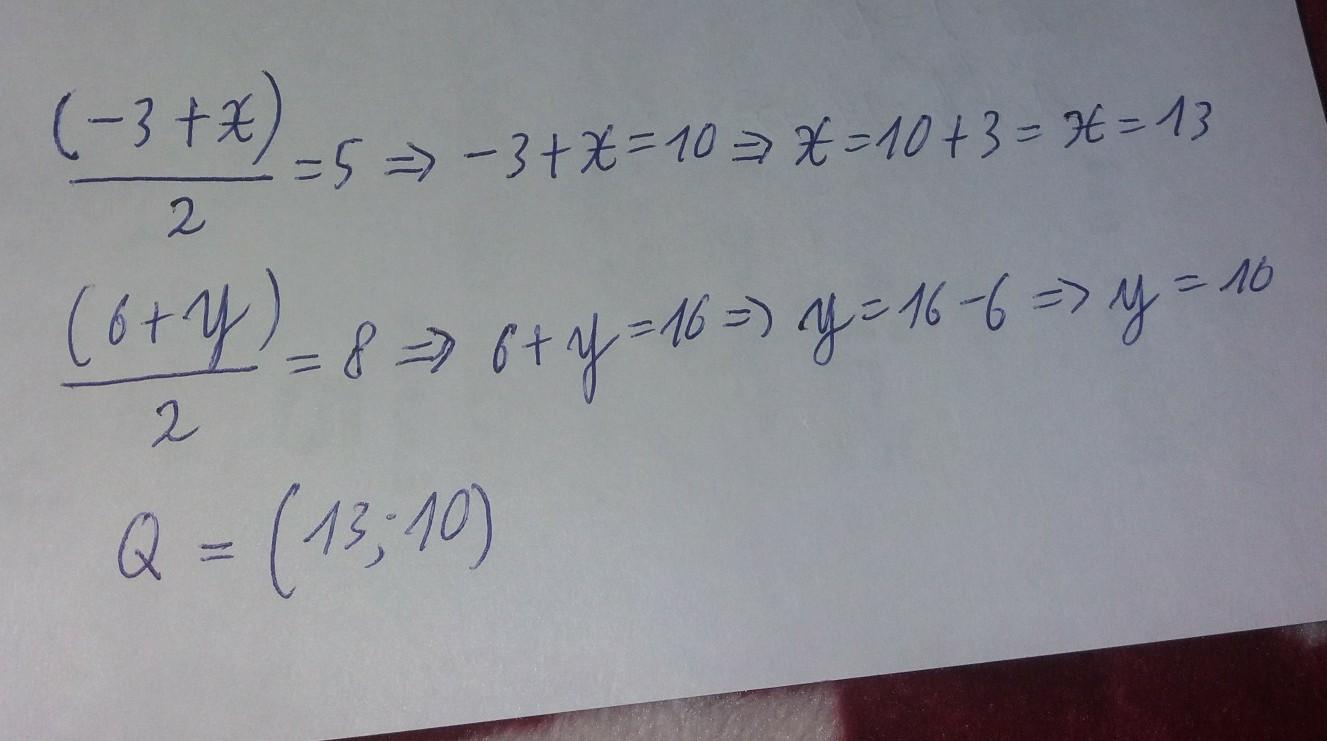 (-3+x)/2 = 5 ⇒ -3+x=10 ⇒ x=10+3= x=13
(6+y)/2 = 8 ⇒ 6+y=16 ⇒ y=16-6 ⇒ y=10
Q = (13;10)